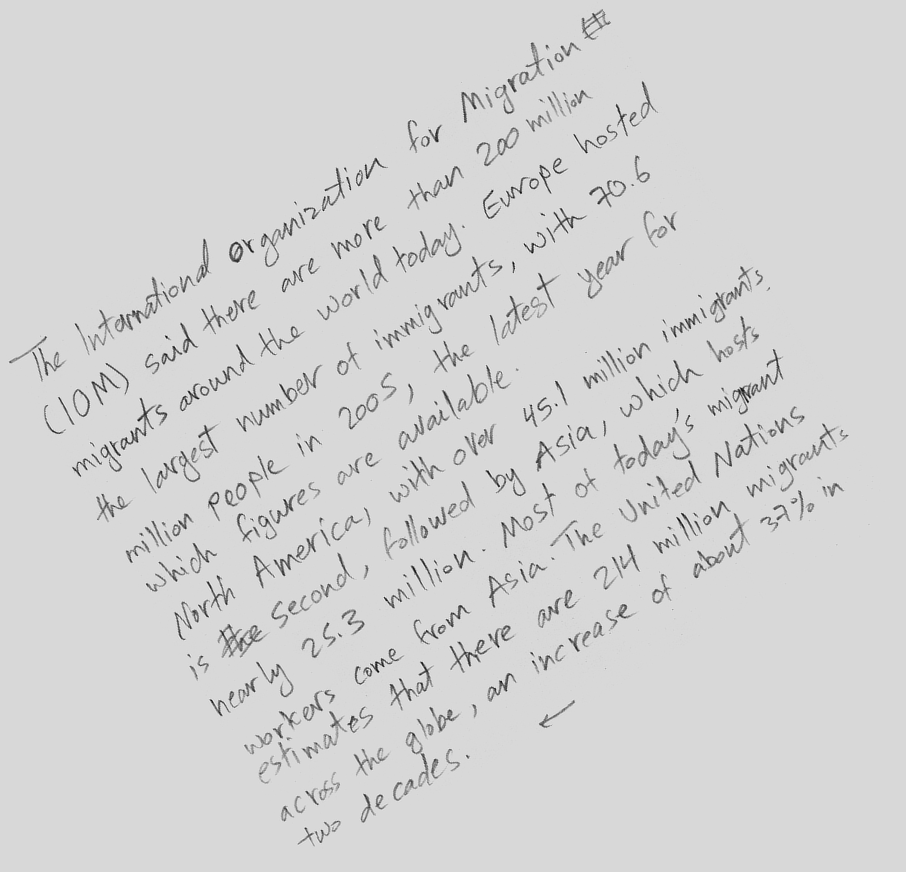 The International organization for Migration
(IOM) said there are more than 200 million
migrants around the world today. Europe hosted
the largest number of immigrants, with 70.6
million people in 2005, the latest year for
which figures are available.
North America, with over 45.1 million immigrants.
is second, followed by Asia, which hosts
nearly 25.3 million. Most of today's migrant
workers come from Asia. The United Nations
estimates that there are 214 million migrants
across the globe, an increase of about 37% in
two decades.